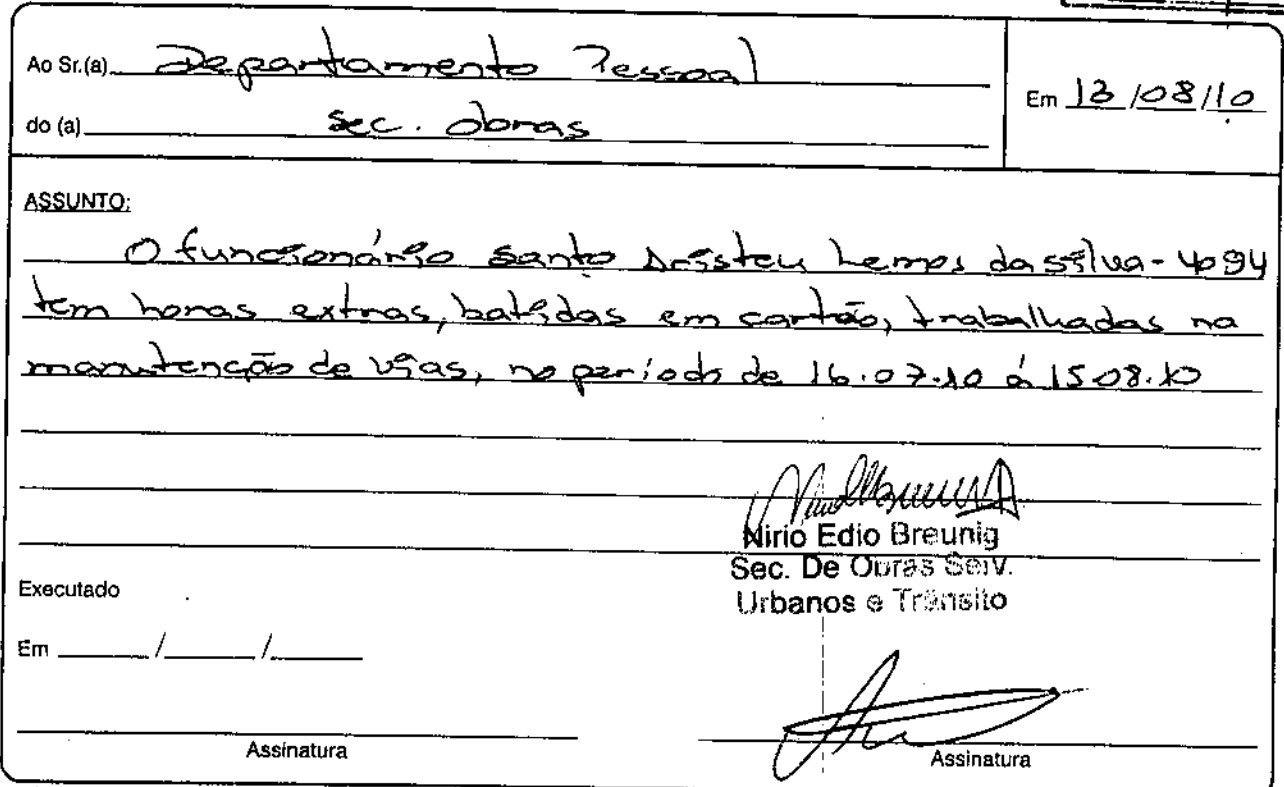 Ao Sr.(a) Departamento Pessoal
do (a) Sec. Obras
Em 13/08/10
ASSUNTO:
O funcionário Santo Aristeu Lemos da Silva - 4094
tem horas extras, batidas em cartão, trabalhadas na
manutenção de vias, no período de 16.07.10 á 15.08.10
Nirio Edio Breunig
Sec. De Obras Serv.
Urbanos e Trânsito
Executado
Em ___/___/___
Assinatura
Assinatura